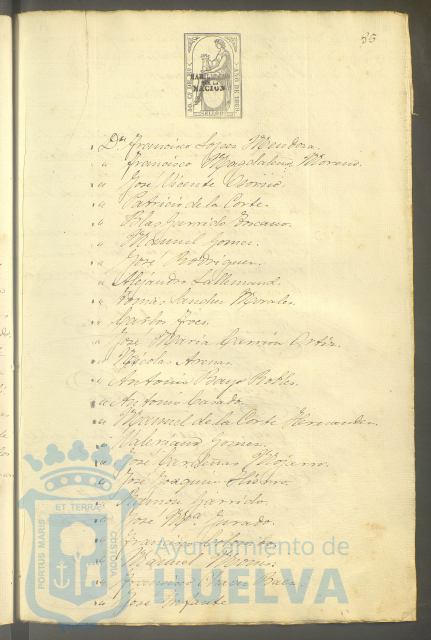 35
HABILITADO
POR LA
NACION
Dn Francisco Lopez Mendoza.
" Francisco Magdalena Moreno.
" José Vicente Osorio.
" Patricio de la Corte.
" Blas Garrido Toscano.
" Manuel Gomez.
" José Rodriguez.
" Alejandro Lallemand.
" Tomas Sanchez Morales.
" Carlos
" José Maria Garzon Ortiz.
" Nicolas Arenas.
" Antonio Bayo Robles.
" Antonio Casado.
" Manuel de la Corte Hernandez
" Valeriano Gomez.
" José Cardenas
" José Joaquin
" Ramon Garrido.
" José Ma Jurado.
" Francisco
" Manuel
" Francisco
" José Infante
PORTUS MARIS
ET TERRAE
CUSTODIA
Ayuntamiento de
HUELVA